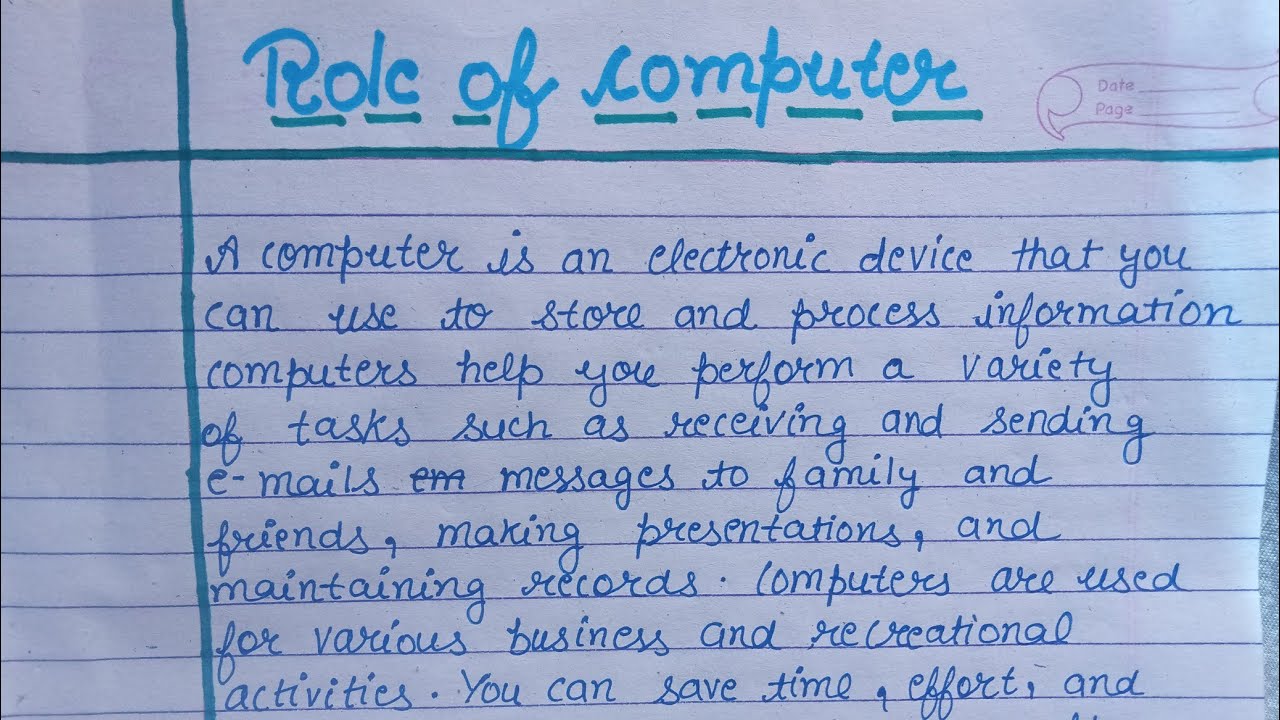 Role of computer
Date
Page
A computer is an electronic device that you
can use to store and process information
computers help you perform a variety
of tasks such as receiving and sending
e-mails em messages to family and
friends, making presentations, and
maintaining records. Computers are used
for various business and recreational
activities. You can save time, effort, and